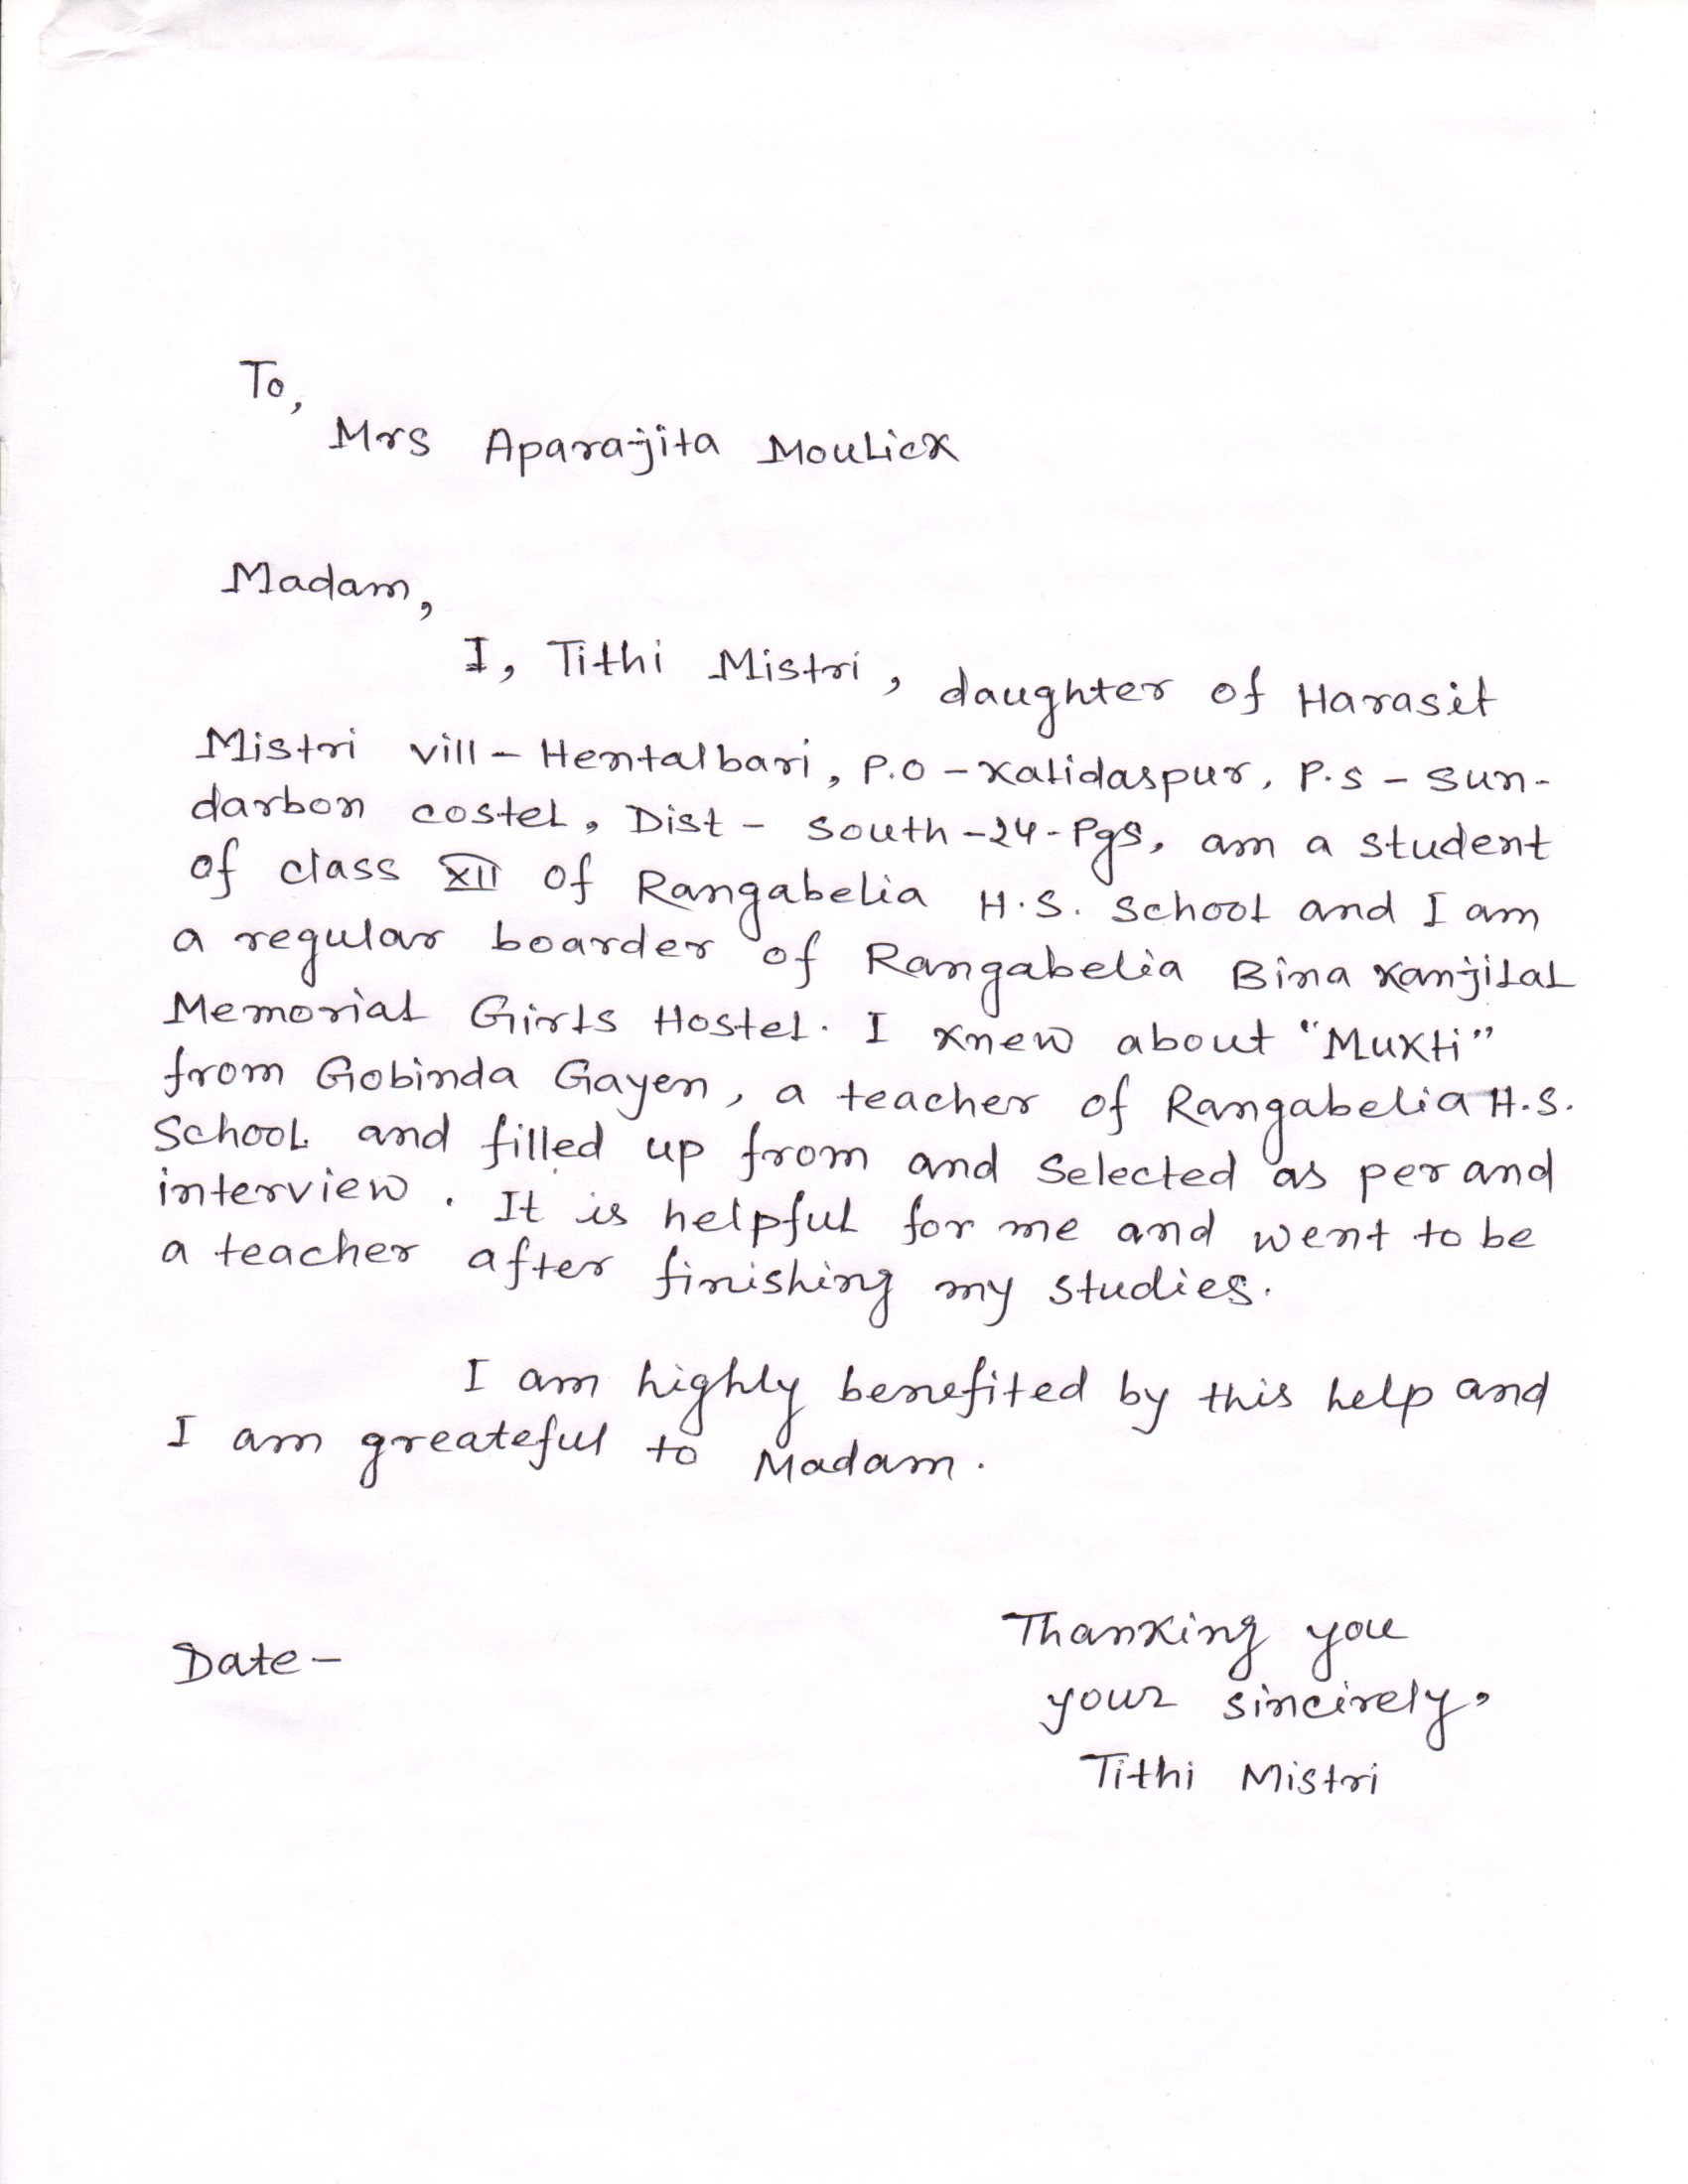 To,
Mrs Aparajita Moulick
Madam,
I, Tithi Mistri, daughter of Harasit
Mistri vill - Hentalbari, P.O - Kalidaspur, P.S - Sun-
darbon costel, Dist - South -24- Pgs, am a student
of class XII of Rangabelia H.S. School and I am
a regular boarder of Rangabelia Bina Kanjilal
Memorial Girls Hostel. I knew about "Mukti"
from Gobinda Gayen, a teacher of Rangabelia H.S.
School and filled up from and Selected as per and
interview. It is helpful for me and went to be
a teacher after finishing my studies.
I am highly benefited by this help and
I am greateful to Madam.
Thanking you
Date -
your sincirely,
Tithi Mistri